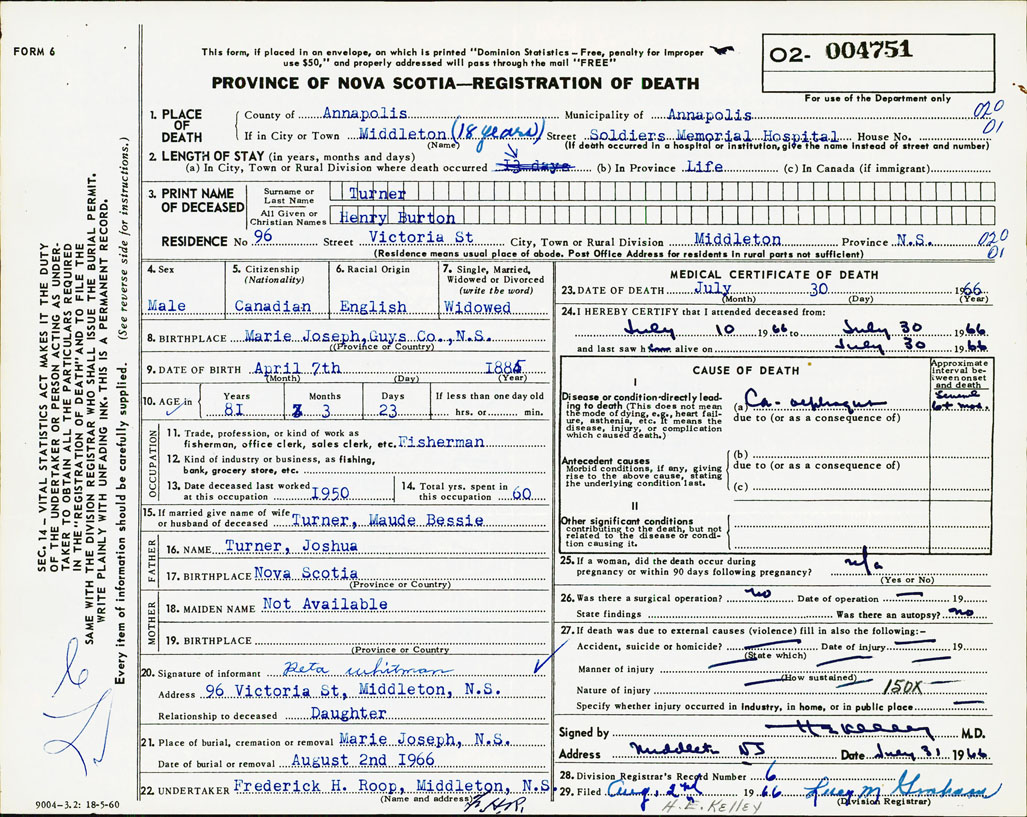 FORM 6
This form, if placed in an envelope, on which is printed "Dominion Statistics – Free, penalty for improper
use $50," and properly addressed will pass through the mail "FREE"
PROVINCE OF NOVA SCOTIA—REGISTRATION OF DEATH
O2- 004751
For use of the Department only
SEC. 14 – VITAL STATISTICS ACT MAKES IT THE DUTY
OF THE UNDERTAKER OR PERSON ACTING AS UNDER-
TAKER TO OBTAIN ALL THE PARTICULARS REQUIRED
IN THE "REGISTRATION OF DEATH" AND TO FILE THE
SAME WITH THE DIVISION REGISTRAR WHO SHALL ISSUE THE BURIAL PERMIT.
WRITE PLAINLY WITH UNFADING INK. THIS IS A PERMANENT RECORD.
Every item of information should be carefully supplied. (See reverse side for instructions.)
1. PLACE OF DEATH
County of Annapolis Municipality of Annapolis 020
01
If in City or Town Middleton (18 years) Street Soldiers Memorial Hospital House No.
(Name) (If death occurred in a hospital or institution, give the name instead of street and number)
2. LENGTH OF STAY (in years, months and days)
(a) In City, Town or Rural Division where death occurred 13 days (b) In Province Life (c) In Canada (if immigrant)
3. PRINT NAME OF DECEASED
Surname or Last Name Turner
All Given or Christian Names Henry Burton
RESIDENCE No 96 Street Victoria St City, Town or Rural Division Middleton Province N.S. 020
01
(Residence means usual place of abode. Post Office Address for residents in rural parts not sufficient)
4. Sex
Male
5. Citizenship
(Nationality)
Canadian
6. Racial Origin
English
7. Single, Married, Widowed or Divorced
(write the word)
Widowed
8. BIRTHPLACE Marie Joseph,Guys Co.,N.S.
(Province or Country)
9. DATE OF BIRTH April 7th 1885
(Month) (Day) (Year)
10. AGE in
Years Months Days If less than one day old
81 3 23 hrs. or min.
OCCUPATION
11. Trade, profession, or kind of work as
fisherman, office clerk, sales clerk, etc. Fisherman
12. Kind of industry or business, as fishing,
bank, grocery store, etc.
13. Date deceased last worked
at this occupation 1950
14. Total yrs. spent in
this occupation 60
15. If married give name of wife
or husband of deceased Turner, Maude Bessie
FATHER
16. NAME Turner, Joshua
17. BIRTHPLACE Nova Scotia
(Province or Country)
MOTHER
18. MAIDEN NAME Not Available
19. BIRTHPLACE
(Province or Country)
20. Signature of informant Reta Whitman
Address 96 Victoria St, Middleton, N.S.
Relationship to deceased Daughter
21. Place of burial, cremation or removal Marie Joseph, N.S.
Date of burial or removal August 2nd 1966
22. UNDERTAKER Frederick H. Roop, Middleton, N.S.
(Name and address) F.H.R.
9004-3.2: 18-5-60
MEDICAL CERTIFICATE OF DEATH
23. DATE OF DEATH July 30 1966
(Month) (Day) (Year)
24. I HEREBY CERTIFY that I attended deceased from:
July 10 1966 to July 30 1966
and last saw him alive on July 30 1966
CAUSE OF DEATH
Approximate interval between onset and death
I
Disease or condition directly lead-
ing to death (This does not mean
the mode of dying, e.g., heart fail-
ure, asthenia, etc. It means the
disease, injury, or complication
which caused death.)
(a) Ca - oesphagus
Several
6+ mos.
due to (or as a consequence of)
Antecedent causes
Morbid conditions, if any, giving
rise to the above cause, stating
the underlying condition last.
(b)
due to (or as a consequence of)
(c)
II
Other significant conditions
contributing to the death, but not
related to the disease or condi-
tion causing it.
25. If a woman, did the death occur during
pregnancy or within 90 days following pregnancy? n/a
(Yes or No)
26. Was there a surgical operation? no Date of operation — 19
State findings Was there an autopsy? no
27. If death was due to external causes (violence) fill in also the following:–
Accident, suicide or homicide? Date of injury 19
(State which)
Manner of injury
(How sustained)
Nature of injury 150X
Specify whether injury occurred in industry, in home, or in public place
Signed by H E Kelley M.D.
Address Middleton NS Date July 31 1966
28. Division Registrar's Record Number 6
29. Filed Aug. 2nd 1966 Lucy M Graham
(Division Registrar)
H.E. KELLEY